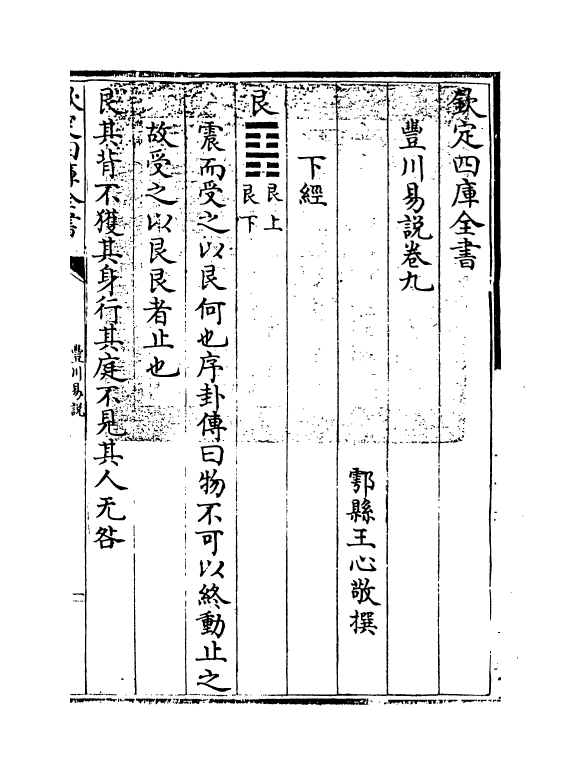 欽定四庫全書
豐川易說卷九
鄠縣王心敬撰
下經
艮䷳艮上艮下
震而受之以艮何也序卦傳曰物不可以終動止之
故受之以艮艮者止也
艮其背不獲其身行其庭不見其人无咎
欽定四庫全書
豐川易說
一